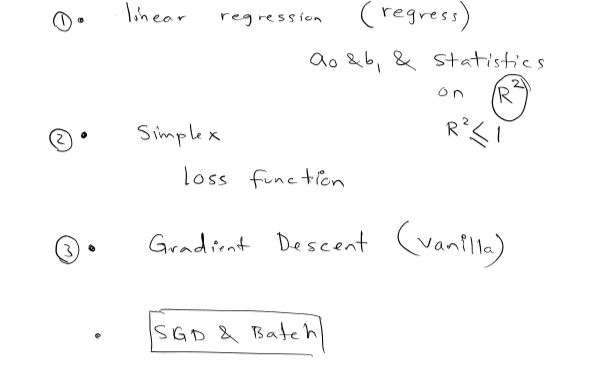 ① • linear regression (regress)
a₀ & b₁ & statistics
on R²
R² ≤ 1
② • Simplex
loss function
③ • Gradient Descent (vanilla)
• SGD & Batch